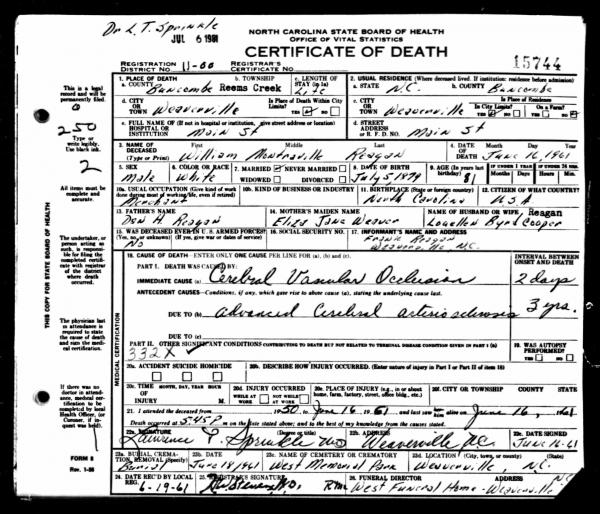 Dr L. T. Sprinkle
JUL 6 1961
NORTH CAROLINA STATE BOARD OF HEALTH
OFFICE OF VITAL STATISTICS
CERTIFICATE OF DEATH
15744
REGISTRATION DISTRICT NO. 11-00 REGISTRAR'S CERTIFICATE NO.
1. PLACE OF DEATH
a. COUNTY Buncombe b. TOWNSHIP Reems Creek c. LENGTH OF STAY (in 1a) Life
2. USUAL RESIDENCE (Where deceased lived. If institution: residence before admission)
a. STATE N.C. b. COUNTY Buncombe
d. CITY OR TOWN Weaverville Is Place of Death Within City Limits? YES NO
c. CITY OR TOWN Weaverville Is Place of Residence In City Limits? YES NO On a Farm? YES NO
e. FULL NAME OF (If not in hospital or institution, give street address or location) HOSPITAL OR INSTITUTION Main St
d. STREET ADDRESS OR R. F. D. NO. Main St
3. NAME OF DECEASED (Type or Print) First William Middle Montraville Last Reagan
4. DATE OF DEATH June 16, 1961
5. SEX Male 6. COLOR OR RACE White 7. MARRIED NEVER MARRIED WIDOWED DIVORCED 8. DATE OF BIRTH July 5, 1879 9. AGE (In years last birthday) 81 IF UNDER 1 YEAR Months Days IF UNDER 24 HRS. Hours Min.
10a. USUAL OCCUPATION (Give kind of work done during most of working life, even if retired) Merchant 10b. KIND OF BUSINESS OR INDUSTRY 11. BIRTHPLACE (State or foreign country) North Carolina 12. CITIZEN OF WHAT COUNTRY? U.S.A.
13. FATHER'S NAME Dan H. Reagan 14. MOTHER'S MAIDEN NAME Eliza Jane Weaver NAME OF HUSBAND OR WIFE Louellen Byrd Cooper Reagan
15. WAS DECEASED EVER IN U. S. ARMED FORCES? (Yes, no, or unknown) (If yes, give war or dates of service) No 16. SOCIAL SECURITY NO. 17. INFORMANT'S NAME AND ADDRESS Frank Reagan Weaverville N.C.
18. CAUSE OF DEATH—ENTER ONLY ONE CAUSE PER LINE FOR (a), (b), and (c). INTERVAL BETWEEN ONSET AND DEATH
PART I. DEATH WAS CAUSED BY:
IMMEDIATE CAUSE (a) Cerebral Vascular Occlusion 2 days
ANTECEDENT CAUSES—Conditions, if any, which gave rise to above cause (a), stating the underlying cause last.
DUE TO (b) advanced cerebral arteriosclerosis 3 yrs.
DUE TO (c)
PART II. OTHER SIGNIFICANT CONDITIONS CONTRIBUTING TO DEATH BUT NOT RELATED TO TERMINAL DISEASE CONDITION GIVEN IN PART I (a) 19. WAS AUTOPSY PERFORMED? YES NO
332X
20a. ACCIDENT SUICIDE HOMICIDE 20b. DESCRIBE HOW INJURY OCCURRED. (Enter nature of injury in Part I or Part II of item 18)
20c. TIME OF INJURY HOUR MONTH, DAY, YEAR M. 20d. INJURY OCCURRED WHILE AT WORK NOT WHILE AT WORK 20e. PLACE OF INJURY (e.g., in or about home, farm, factory, street, office bldg., etc.) 20f. CITY OR TOWNSHIP COUNTY STATE
21. I attended the deceased from 1950 to June 16, 1961 and last saw him alive on June 16, 1961
Death occurred at 5:45 P m on the date stated above; and to the best of my knowledge from the causes stated.
22a. SIGNATURE (Degree or title) Lawrence T. Sprinkle MD 22b. ADDRESS Weaverville, N.C. 22c. DATE SIGNED June 16-61
23a. BURIAL, CREMATION, REMOVAL (Specify) Burial 23b. DATE June 18, 1961 23c. NAME OF CEMETERY OR CREMATORY West Memorial Park 23d. LOCATION (City, town, or county) (State) Weaverville, N.C.
24. DATE REC'D BY LOCAL REG. 6-19-61 25. REGISTRAR'S SIGNATURE 26. FUNERAL DIRECTOR ADDRESS West Funeral Home - Weaverville N.C.
This is a legal record and will be permanently filed.
0
250
Type or write legibly. Use black ink.
2
All items must be complete and accurate.
The undertaker, or person acting as such, is responsible for filing the completed certificate with registrar of the district where death occurred.
The physician last in attendance is required to state the cause of death and sign the medical certification.
If there was no doctor in attendance, medical certification to be completed by local Health Officer, or Coroner, if inquest was held.
THIS COPY FOR STATE BOARD OF HEALTH
MEDICAL CERTIFICATION
FORM 8
Rev. 1-56